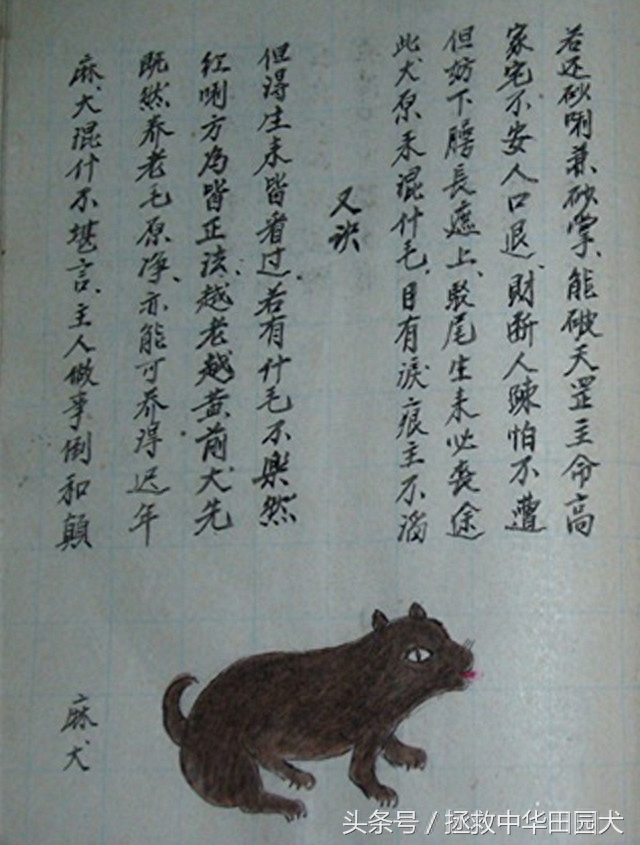 若还砂唎兼砂掌、能破天罡主命高
家宅不安人口退、財断人踈怕不遭
但妨下腰長遮上、駁尾生来必丧途
此犬原来混什毛、目有淚痕主不滔
又诀
但得生来皆看过、若有什毛不樂然
红唎方为皆正法、越老越黄前犬先
既然养老毛原净、亦能可养得迟年
麻犬混什不堪言、主人做事倒和顛
麻犬
头条号／拯救中华田园犬